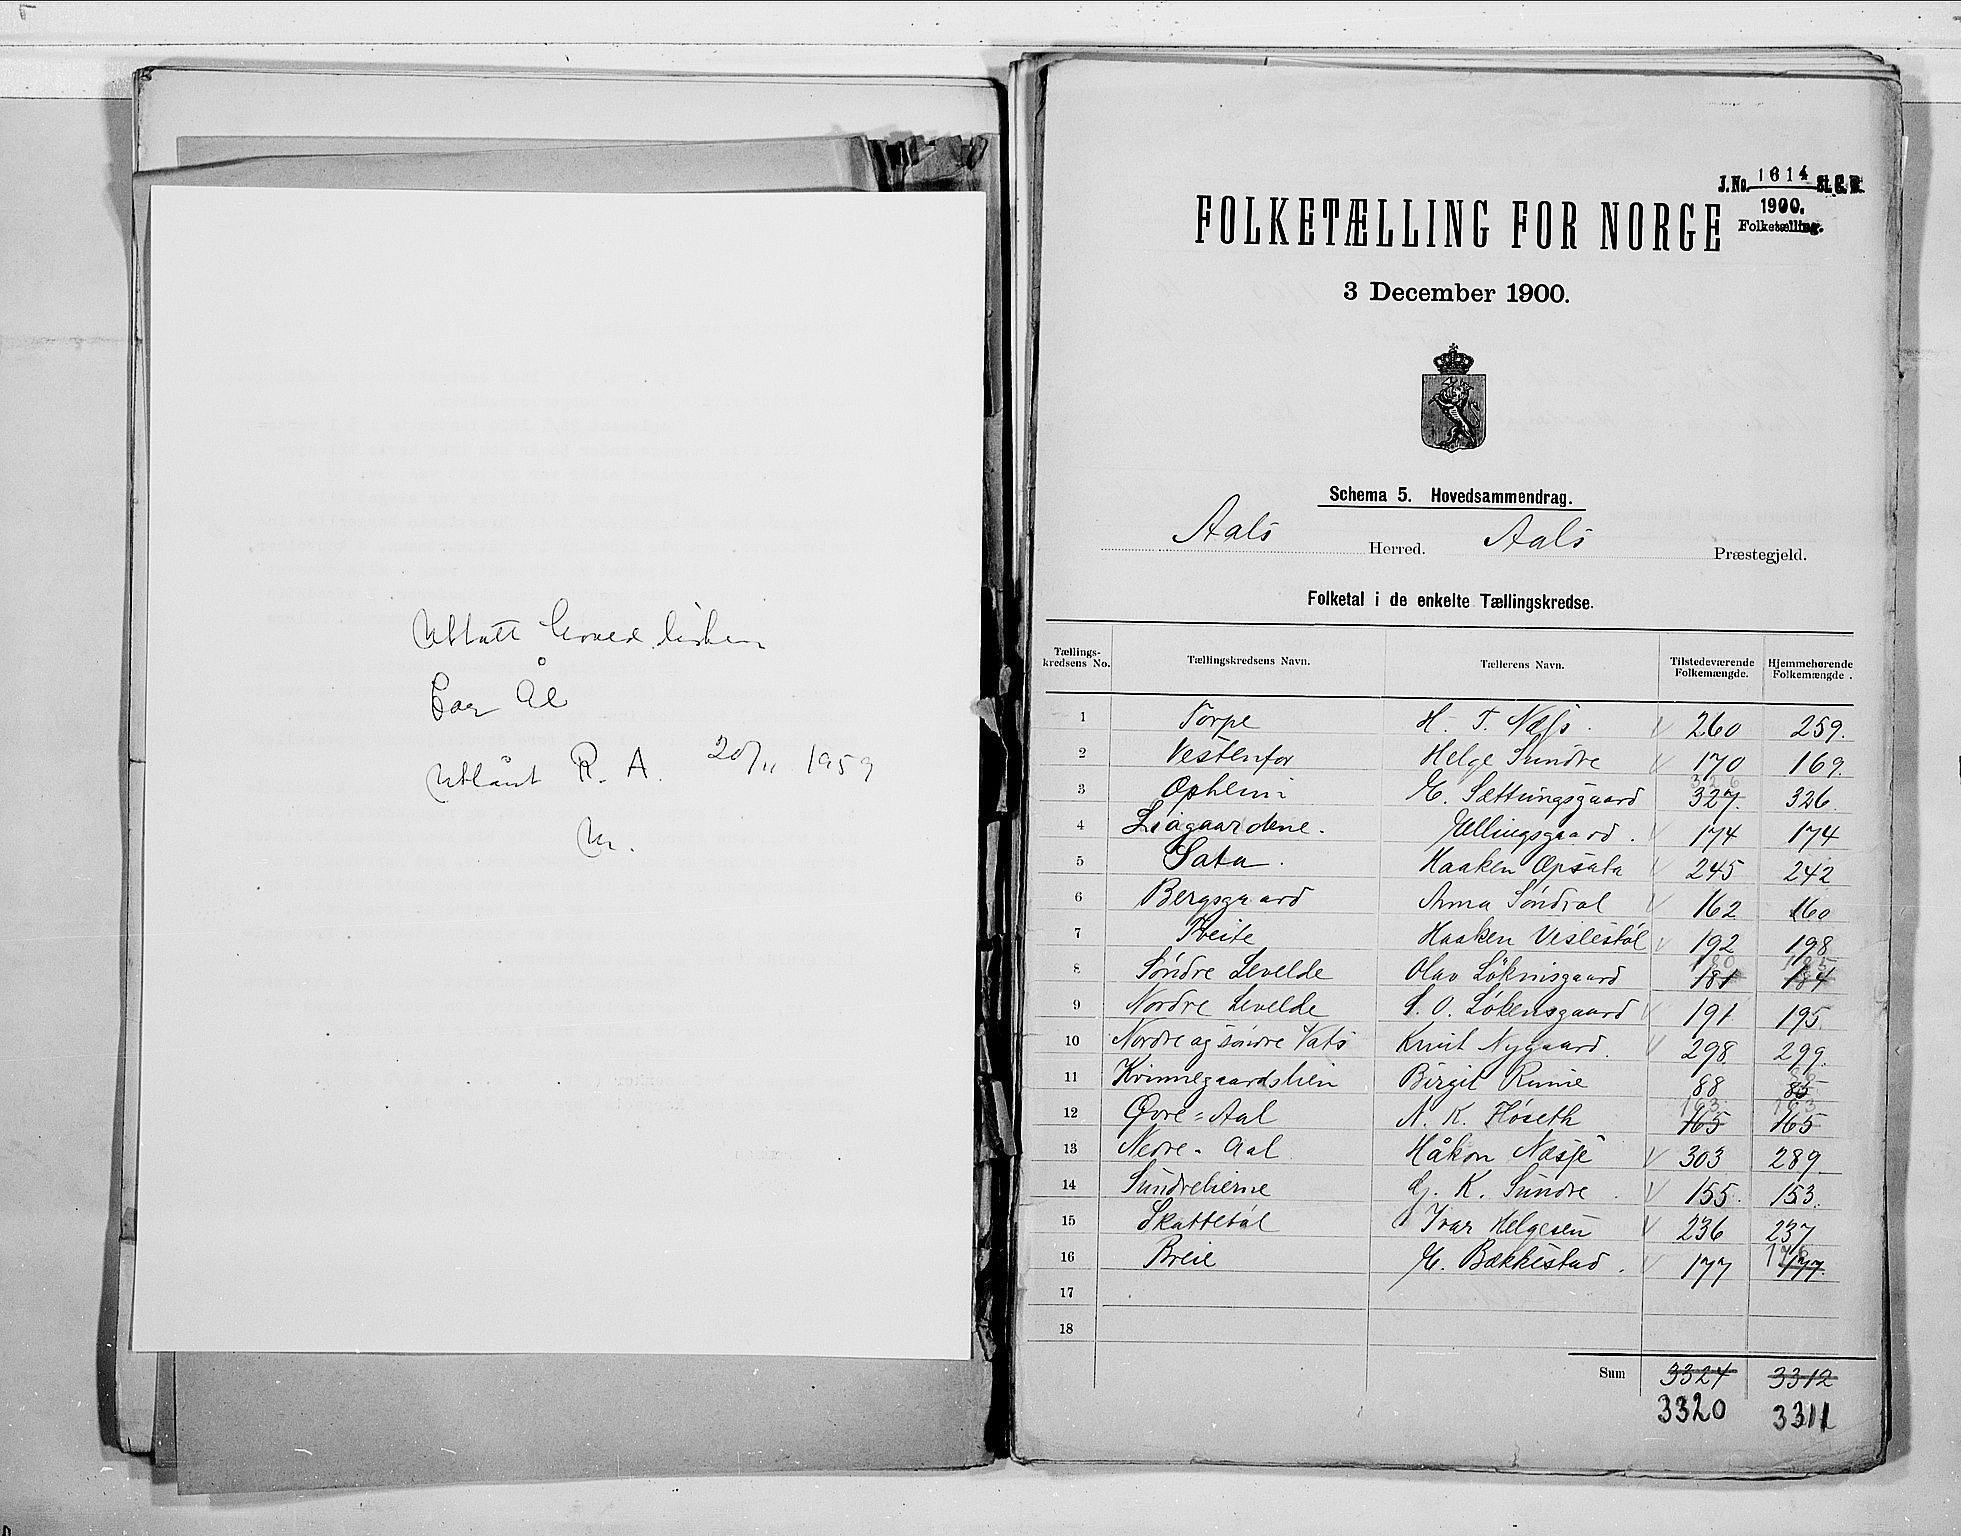 Uttatt hovedlisten
for Ål
Utlånt R. A. 20/11 1959
J. No. 1614 St. C. B.
1900.
Folketælling.
FOLKETÆLLING FOR NORGE
3 December 1900.
Schema 5. Hovedsammendrag.
Aals Herred. Aals Præstegjeld.
Folketal i de enkelte Tællingskredse.
Tællings-kredsens No. Tællingskredsens Navn. Tællerens Navn. Tilstedeværende Folkemængde. Hjemmehørende Folkemængde.
1 Torpe H. T. Næss. 260 259.
2 Vestenfor Helge Sundre 170 169.
326
3 Opheim E. Sættungsgaard 327. 326.
4 Liagaardene. Jællingsgaard. 174 174
5 Sata. Haaken Opsata 245 242
6 Bergsgaard Anna Söndral 162 160
7 Tveite Haaken Veslestöl 192 198
180 185
8 Søndre Levelde Olav Lökensgaard 181 184
9 Nordre Levelde S. O. Løkensgaard 191 195
10 Nordre og søndre Vats Knut Nygaard. 298 299.
11 Kvinnegaardslien Birgit Rime 88 85
163 163
12 Øvre-Aal N. K. Høseth 165 165
13 Nedre-Aal Håkon Næsje 303 289.
14 Sundrelierne G. K. Sundre. 155. 153.
15 Skattebøl Ivar Helgesen 236 237
176
16 Breie E. Bækkestad. 177 177.
17
18
Sum 3324 3312
3320 3311